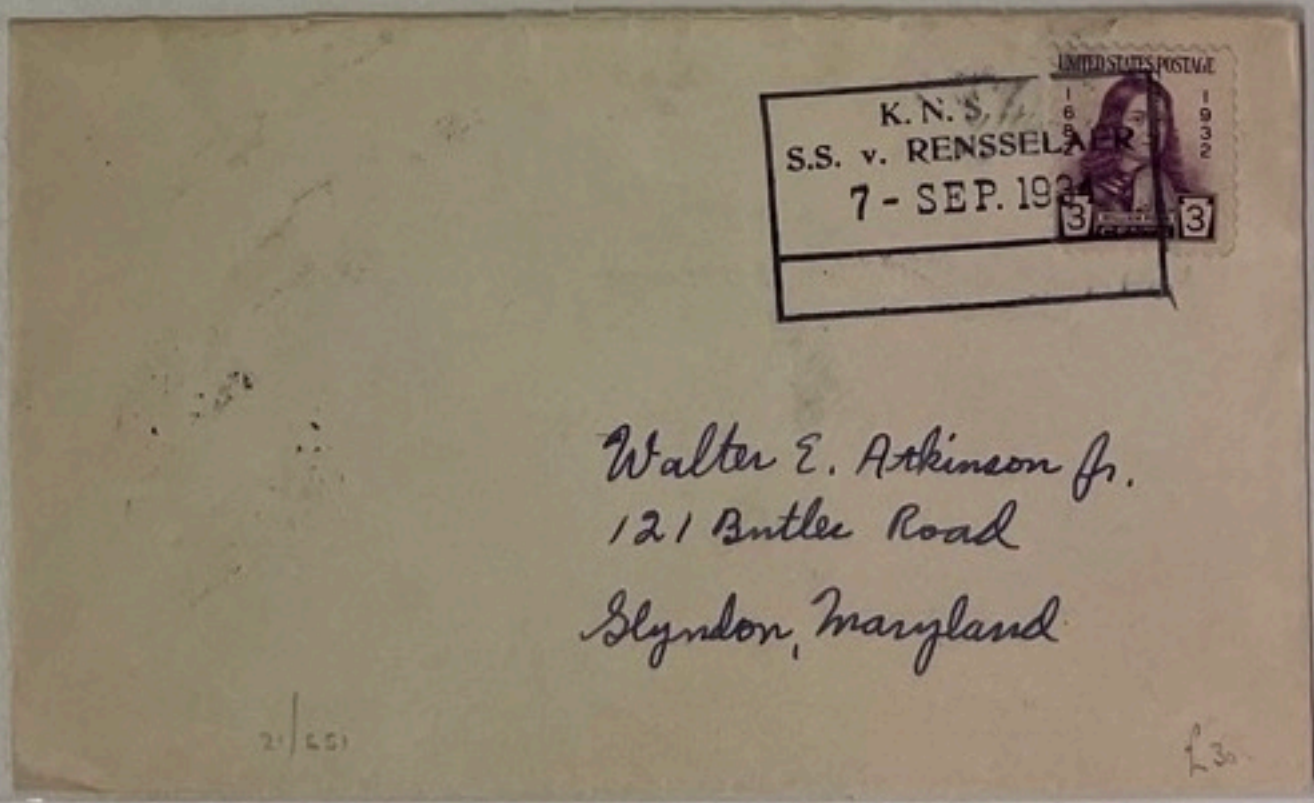 UNITED STATES POSTAGE
1682
1932
K. N. S.
S.S. v. RENSSELAER
7 - SEP. 193
3
3
Walter E. Atkinson Jr.
121 Butler Road
Glyndon, Maryland
£30